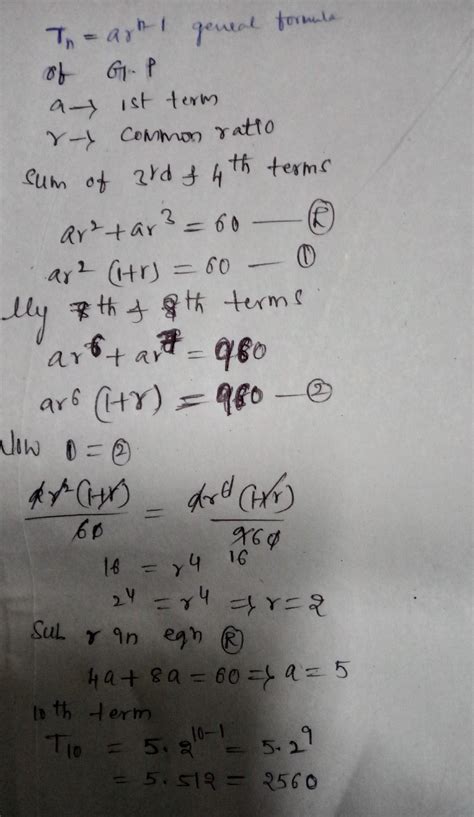 Tn = ar^n-1 geneal formula
of G.P
a → 1st term
r → common ratio
Sum of 3rd & 4th terms
ar² + ar³ = 60 — Ⓡ
ar² (1+r) = 60 — ①
lly 7th & 8th terms
ar⁶ + ar⁷ = 960
ar⁶ (1+r) = 960 — ②
Now ① = ②
ar²(1+r) / 60 = ar⁶(1+r) / 960
16
16 = r⁴
2⁴ = r⁴ ⇒ r = 2
Sub r in eqn Ⓡ
4a + 8a = 60 ⇒ a = 5
10th term
T10 = 5.2^10-1 = 5.2⁹
= 5.512 = 2560